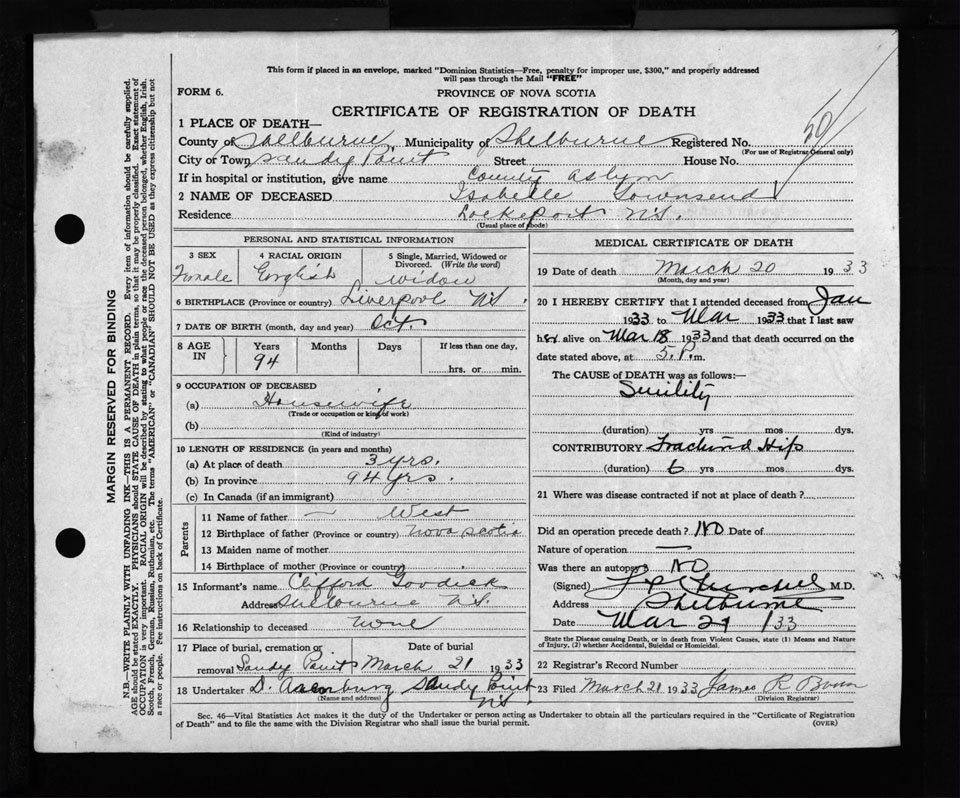 This form if placed in an envelope, marked "Dominion Statistics—Free, penalty for improper use, $300," and properly addressed
will pass through the Mail "FREE"
FORM 6.
PROVINCE OF NOVA SCOTIA
CERTIFICATE OF REGISTRATION OF DEATH
1 PLACE OF DEATH—
County of Shelburne, Municipality of Shelburne Registered No.
(For use of Registrar General only)
City or Town Sandy Point Street House No.
If in hospital or institution, give name County Aslym
2 NAME OF DECEASED Isabelle Townsend
Residence Lockeport N.S.
(Usual place of abode)
MARGIN RESERVED FOR BINDING
N.B.—WRITE PLAINLY WITH UNFADING INK—THIS IS A PERMANENT RECORD. Every item of information should be carefully supplied.
AGE should be stated EXACTLY. PHYSICIANS should STATE CAUSE OF DEATH in plain terms, so that it may be properly classified. Exact statement of
OCCUPATION is very important. RACIAL ORIGIN will be described by stating to what people or race the deceased person belonged, whether English, Irish,
Scotch, French, German, Russian, Ruthenian, etc. The terms "AMERICAN" or "CANADIAN" SHOULD NOT BE USED as they express citizenship but not
a race or people. See instructions on back of Certificate.
PERSONAL AND STATISTICAL INFORMATION
3 SEX
Female
4 RACIAL ORIGIN
English
5 Single, Married, Widowed or
Divorced. (Write the word)
widow
6 BIRTHPLACE (Province or country) Liverpool N.S.
7 DATE OF BIRTH (month, day and year) Oct.
8 AGE
IN
Years Months Days If less than one day,
94
hrs. or min.
9 OCCUPATION OF DECEASED
(a) Housewife
(Trade or occupation or kind of work)
(b)
(Kind of industry)
10 LENGTH OF RESIDENCE (in years and months)
(a) At place of death 3 yrs.
(b) In province 94 yrs.
(c) In Canada (if an immigrant)
Parents
11 Name of father — West
12 Birthplace of father (Province or country) Nova Scotia
13 Maiden name of mother
14 Birthplace of mother (Province or country)
15 Informant's name Clifford Goodick
Address Shelburne N.S.
16 Relationship to deceased None
17 Place of burial, cremation or Date of burial
removal Sandy Point March 21 1933
18 Undertaker D. Sandy Point
(Name and address) N.S.
MEDICAL CERTIFICATE OF DEATH
19 Date of death March 20 1933
(Month, day and year)
20 I HEREBY CERTIFY that I attended deceased from Jan
1933 to Mar 1933 that I last saw
her alive on Mar 18 1933 and that death occurred on the
date stated above, at 5 P.m.
The CAUSE of DEATH was as follows:—
Senility
(duration) yrs mos dys.
CONTRIBUTORY Fractured Hip
(duration) 6 yrs mos dys.
21 Where was disease contracted if not at place of death?
Did an operation precede death? No Date of
Nature of operation —
Was there an autopsy No
(Signed) Churchill M.D.
Address Shelburne
Date Mar 21 /33
State the Disease causing Death, or in death from Violent Causes, state (1) Means and Nature
of Injury, (2) whether Accidental, Suicidal or Homicidal.
22 Registrar's Record Number
23 Filed March 21 1933 James R
(Division Registrar)
Sec. 46—Vital Statistics Act makes it the duty of the Undertaker or person acting as Undertaker to obtain all the particulars required in the "Certificate of Registration
of Death" and to file the same with the Division Registrar who shall issue the burial permit.
(OVER)